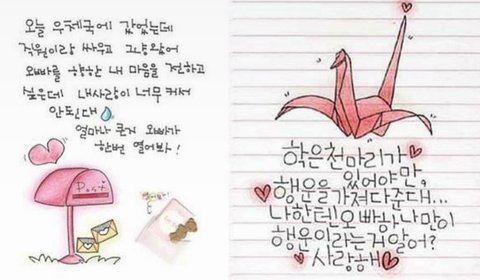 오늘 우체국에 갔었는데
직원이랑 싸우고 그냥왔어
오빠를 향한 내 마음을 전하고
싶은데 내사랑이 너무 커서
안된대
얼마나 큰지 오빠가
한번 열어봐!
Post
학은 천마리가
있어야만,
행운을 가져다준대...
나한텐 오빠 하나만이
행운이라는거알어?
사랑해